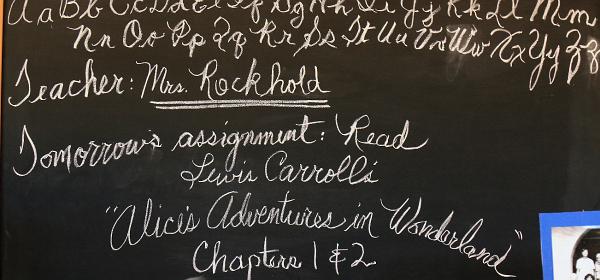 Aa Bb Cc Dd Ee Ff Gg Hh Ii Jj Kk Ll Mm
Nn Oo Pp Qq Rr Ss Tt Uu Vv Ww Xx Yy Zz
Teacher: Mrs. Rockhold
Tomorrow's assignment: Read
Lewis Carroll's
"Alice's Adventures in Wonderland"
Chapters 1 & 2